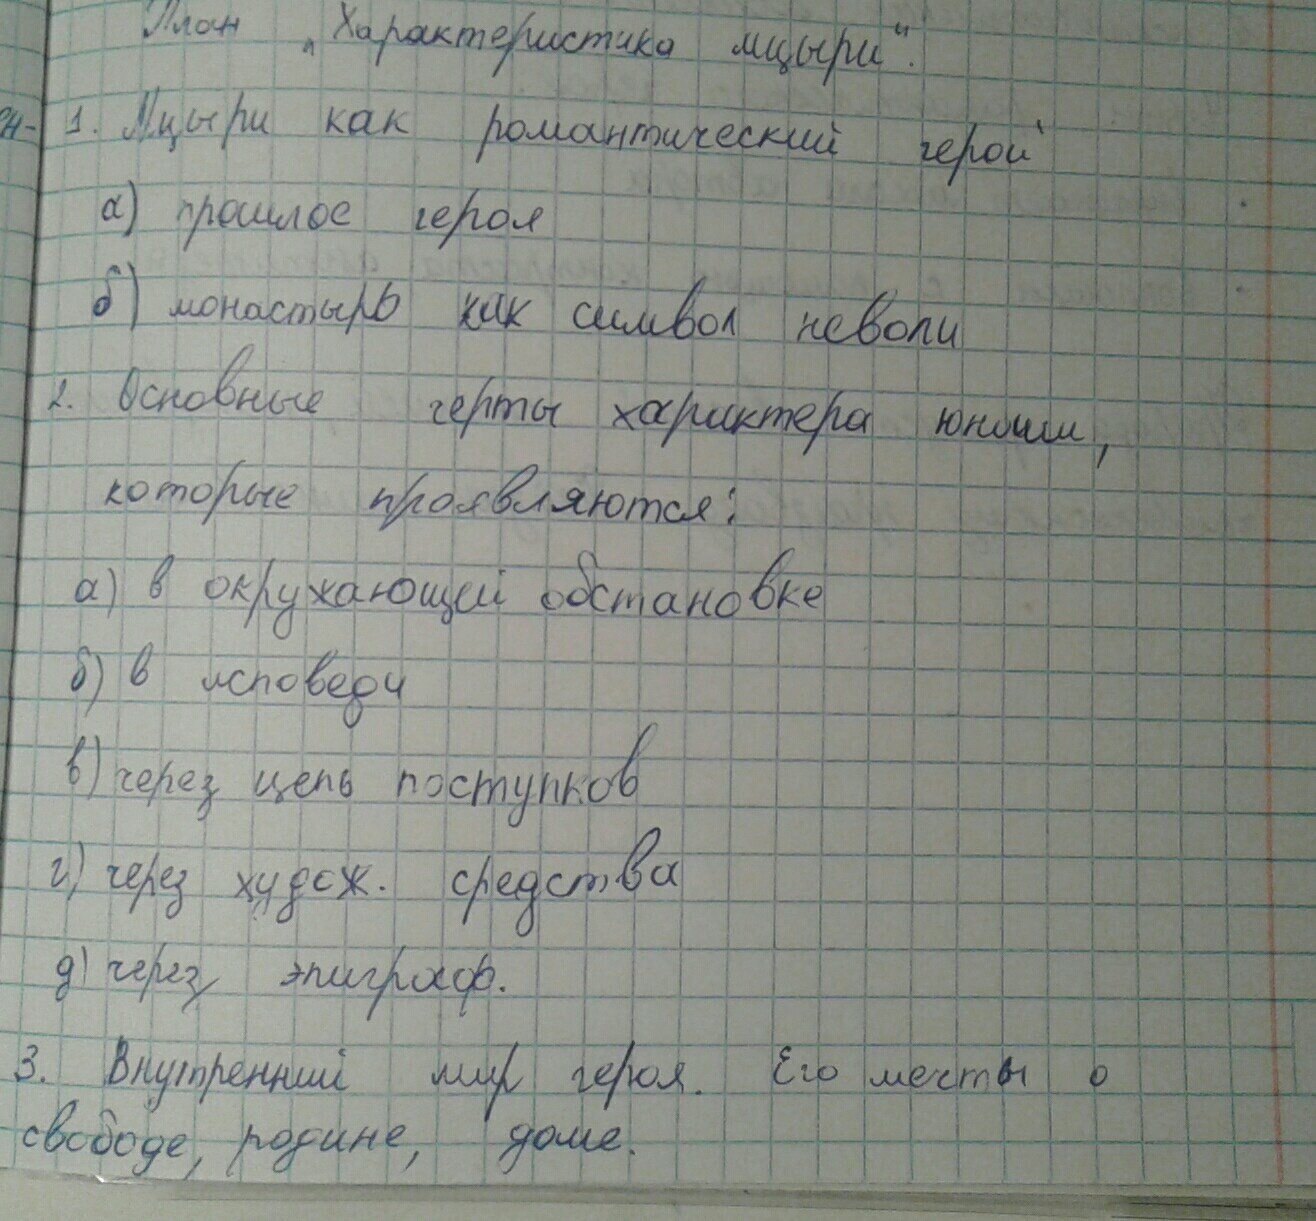 План „Характеристика мцыри".
1. Мцыри как романтический герой
а) прошлое героя
б) монастырь как символ неволи
2. Основные черты характера юноши,
которые проявляются:
а) в окружающей обстановке
б) в исповеди
в) через цепь поступков
г) через худож. средства
д) через эпиграф.
3. Внутренний мир героя. Его мечты о
свободе, родине, доме.